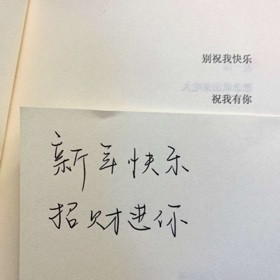 别祝我快乐
祝我有你
新年快乐
招财进你